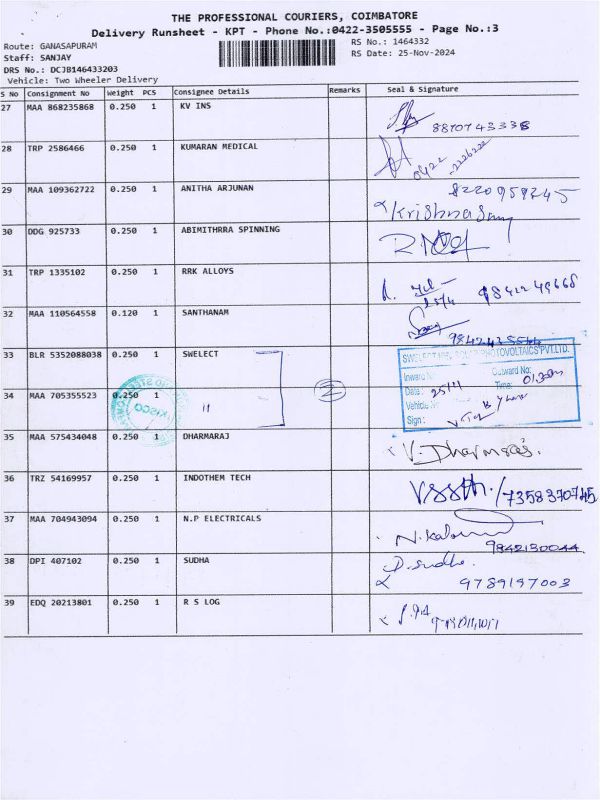 THE PROFESSIONAL COURIERS, COIMBATORE
Delivery Runsheet - KPT - Phone No.:0422-3505555 - Page No.:3
Route: GANASAPURAM RS No.: 1464332
Staff: SANJAY RS Date: 25-Nov-2024
DRS No.: DCJB146433203
Vehicle: Two Wheeler Delivery
S No Consignment No Weight PCS Consignee Details Remarks Seal & Signature
27 MAA 868235868 0.250 1 KV INS
8870743338
28 TRP 2586466 0.250 1 KUMARAN MEDICAL
0422-2226222
29 MAA 109362722 0.250 1 ANITHA ARJUNAN 8220959245
Krishna Samy
30 DDG 925733 0.250 1 ABIMITHRRA SPINNING
31 TRP 1335102 0.250 1 RRK ALLOYS
9842249668
32 MAA 110564558 0.120 1 SANTHANAM
33 BLR 5352088038 0.250 1 SWELECT
Inward No: Outward No:
Date: 25/11 Time:
34 MAA 705355523 0.250 1 " 2
Vehicle No:
Sign:
35 MAA 575434048 0.250 1 DHARMARAJ
V. Dharmaraj.
36 TRZ 54169957 0.250 1 INDOTHEM TECH
/7358370745
37 MAA 704943094 0.250 1 N.P ELECTRICALS
9842130044
38 DPI 407102 0.250 1 SUDHA D. Sudha
9789197003
39 EDQ 20213801 0.250 1 R S LOG